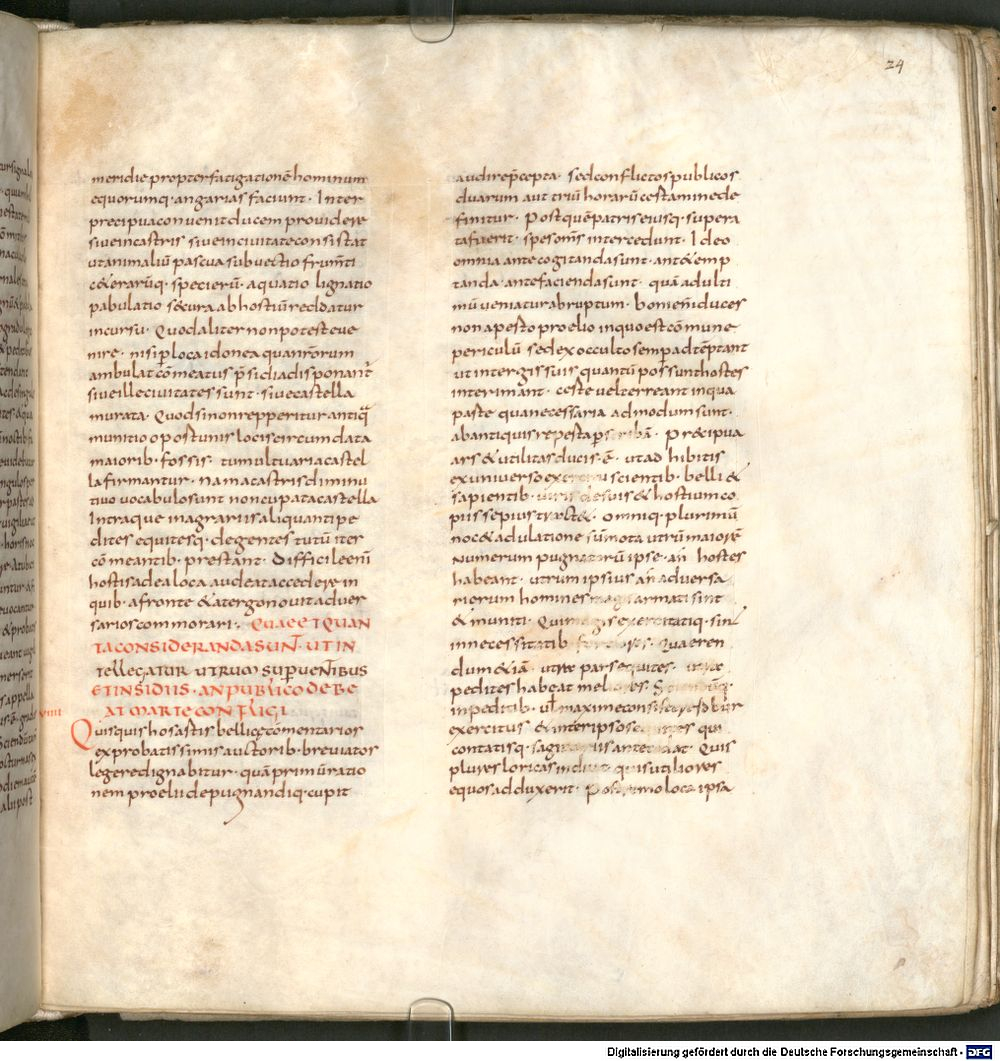 24
meridie propter fatigationē hominum
equorumq· angarias faciunt· Inter
precipua conuenit ducem prouidere
siue in castris siue in ciuitate consistat
ut animaliū pascua subuectio frumti
c&erarūq· specierū· aquatio lignatio
pabulatio secura ab hostiū reddatur
incursu· Quod aliter non potest eue
nire· nisi p loca idonea qua nrorum
ambulat cōmeatus psidia disponant
siue ille ciuitates sunt· siue castella
murata· Quod si non repperitur antiq
munitio opostunis locis circumdata
maiorib· fossis· tumultuaria castel
la firmantur· nam a castris diminu
tiuo uocabulo sunt noncupata castella
Intra que in agrariis aliquanti pe
dites equitesq· degentes tutū iter
cōmeantib· prestant· Difficile enī
hostis ad ea loca audeat accedere in
quib· a fronte & a tergo nouit aduer
sarios commorari· QUAE ET QUAN
TA CONSIDERANDA SUNT· UT IN
TELLEGATUR UTRUM SUPUENTIBUS
ET INSIDIIS· AN PUBLICO DEBE
AT MARTE CONFLIGI
VIIII
Quisquis hos astis bellicę cōmentarios
ex probatissimis auctorib· breuiator
legere dignabitur· quā primū ratio
nem proelii depugnandiq· cupit
audire pcepta· sed conflictos publicos
duarum aut triū horarū cestamine de
finitur· Post quē patris eiusq· supera
ta fuerit· spes oms intercedunt· Ideo
omnia ante cogitanda sunt· ant&emp
tanda· ante facienda sunt· quā ad ulti
mū ueniatur abruptum· boni eni duces
non apesto proelio in quo est cōmune
periculū sed ex occulto semp adteptant
ut intergis suis quantū possunt hostes
interimant· ceste uel terreant in qua
paste qua necessaria admodum sunt·
ab antiquis repesta pscribā· Precipua
ars & utilitas ducis· ē· ut ad hibitis
ex uniuerso scientib· belli &
sapientib· uiris de suis & hostium co
piis sepius tract&· omniq· plurimū
noc& adulatione sūmota utrū maiorē
Numerum pugnatorū ipse· an hostes
habeant· utrum ipsius an aduersa
riorum homines magis armati sint
& muniti· Qui magis exercitatiq· sint
in necessitatib Quaeren
dum & iā· utre pars equites· utre
pedites habeat meliores·
in peditib· uł maxime consistere robur
exercitus & inter ipsos equites qui
contatis q· sagittariis antecedat· Quis
plures loricas induat· quis utiliores
equos adduxerit· Postremo loca ipsa
Digitalisierung gefördert durch die Deutsche Forschungsgemeinschaft - DFG